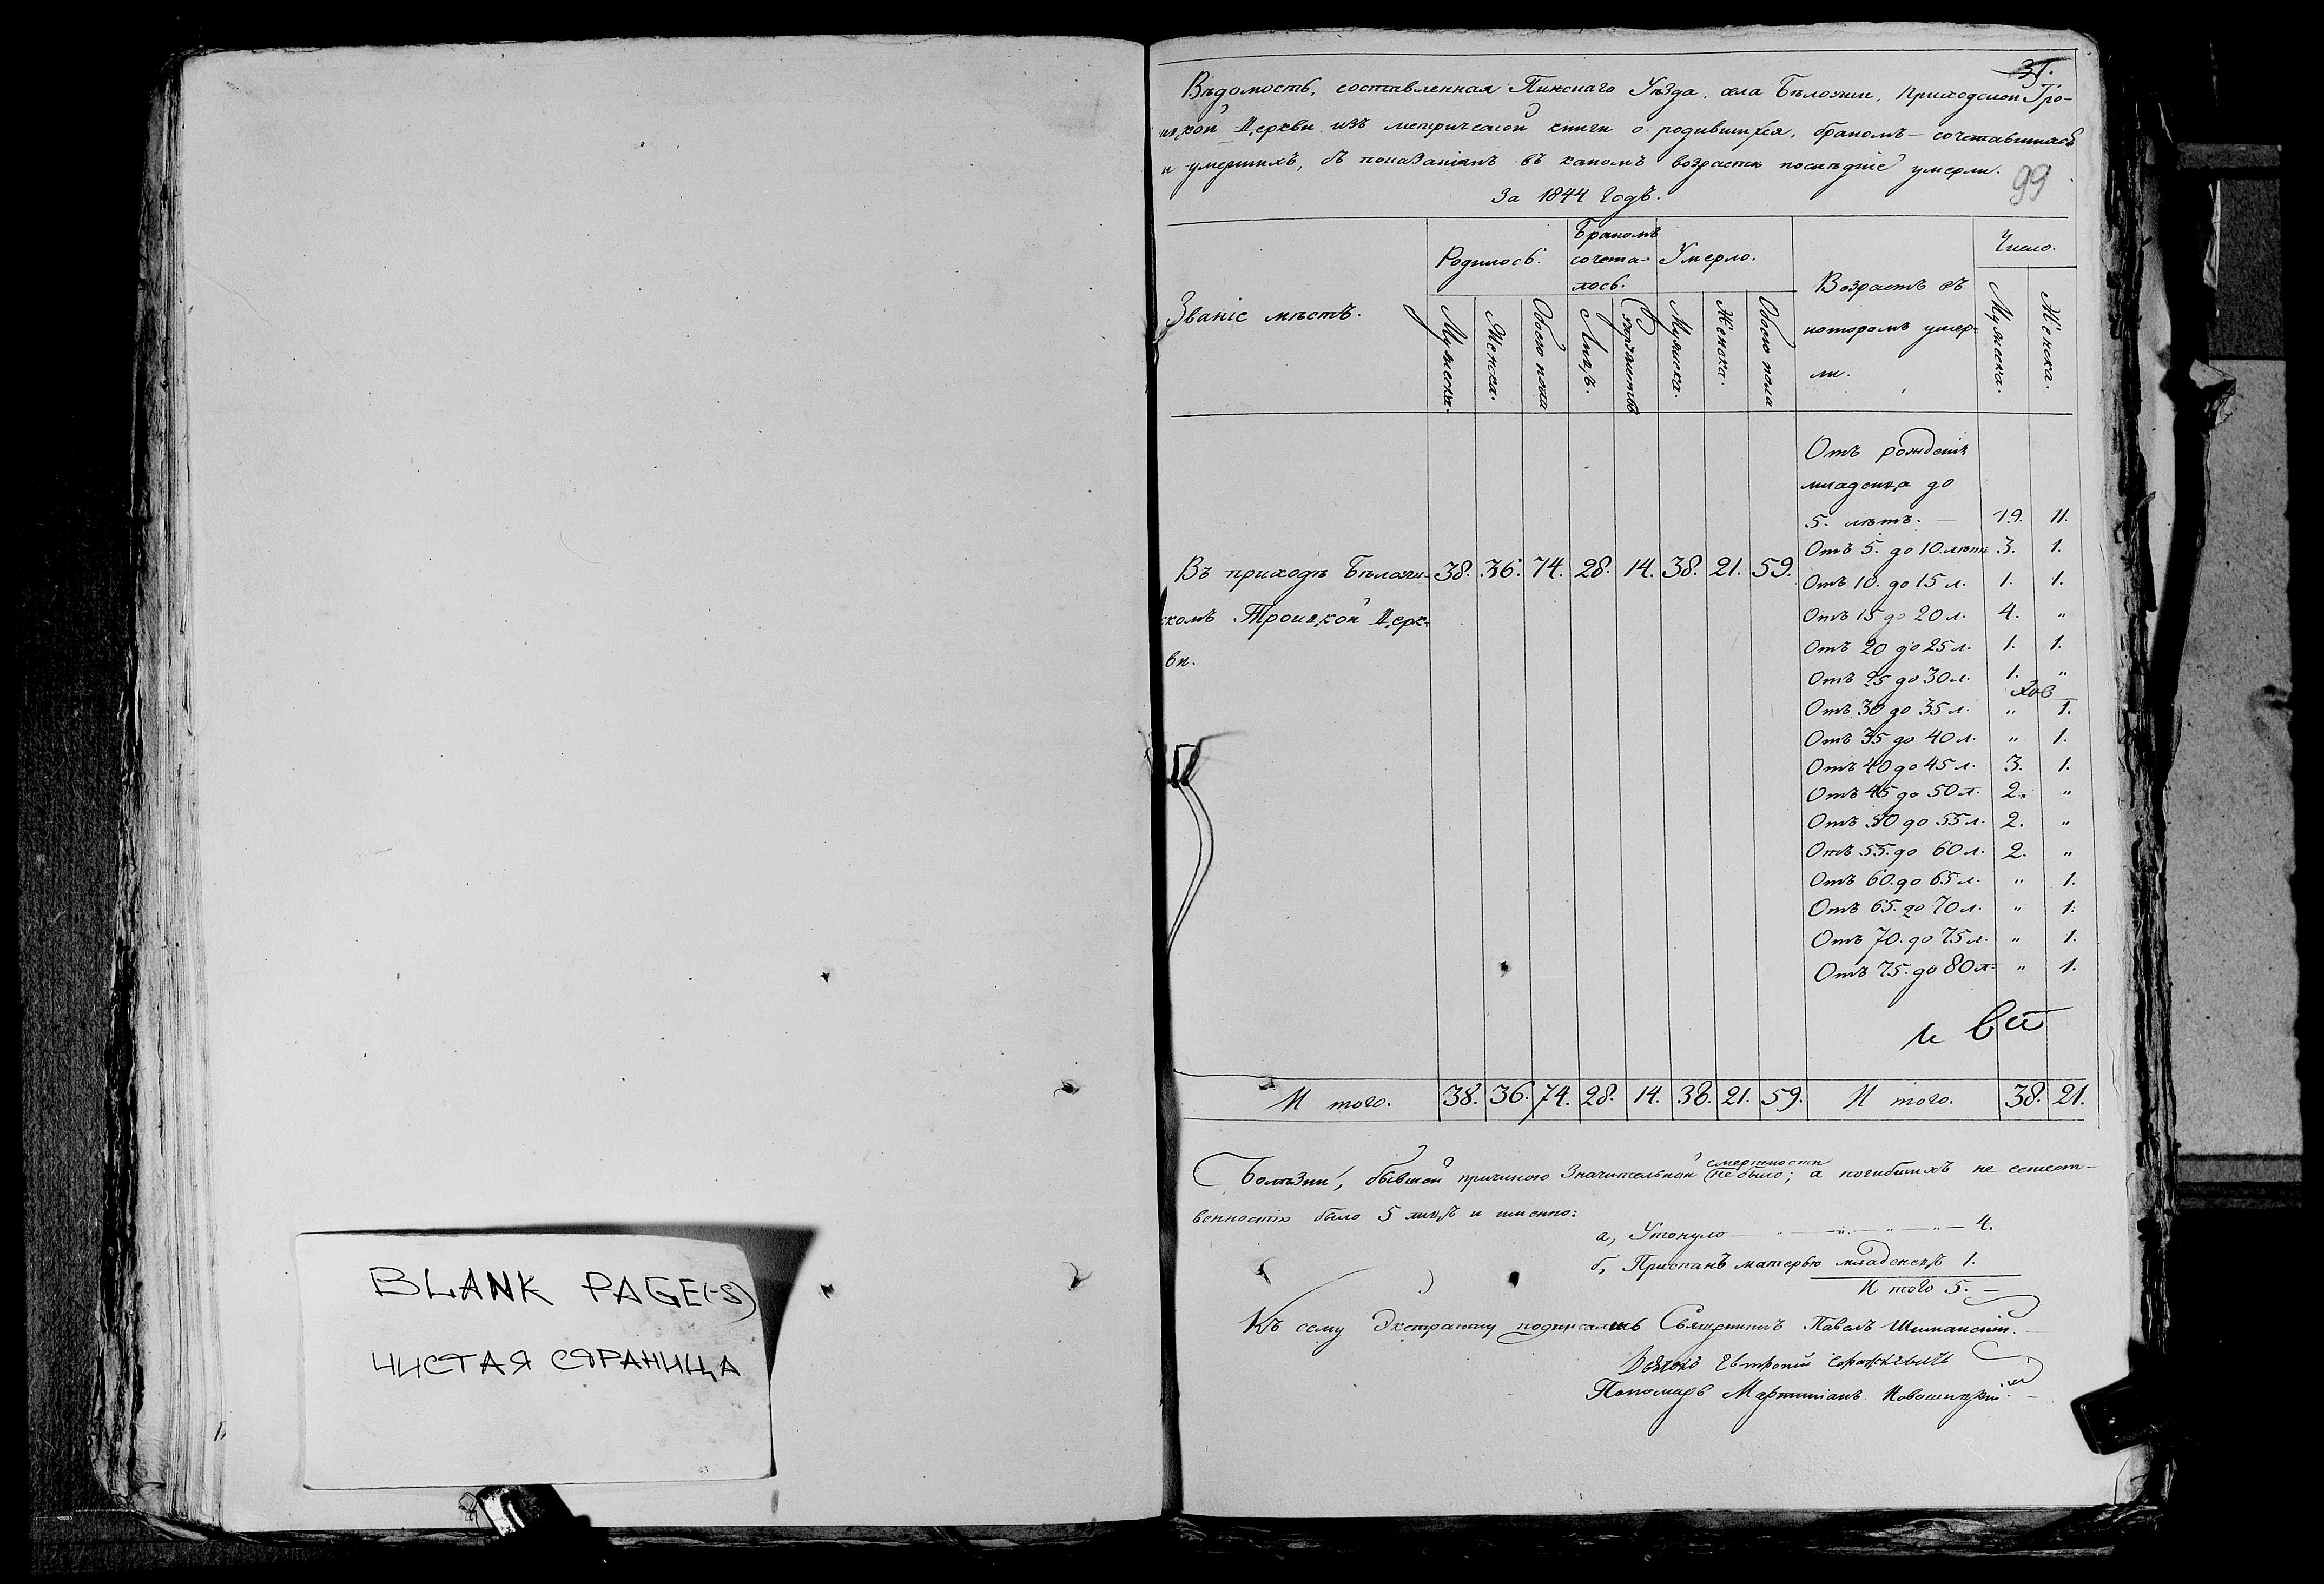 BLANK PAGE(-S)
ЧИСТАЯ СТРАНИЦА
31.
Вѣдомость, составленная Пинскаго Уѣзда, села Бѣлоуши, Приходской Тро-
ицкой Церкви изъ метрической книги о родившихся, бракомъ-сочетавшихся
и умершихъ, съ показаніемъ въ какомъ возрастѣ послѣдніе умерли.
99
За 1844 годъ.
Званіе мѣстъ.
Родилось.
Бракомъ
сочета-
лось.
Умерло.
Возрастъ въ
которомъ умер-
ли.
Число.
Мужеска. Женска. Обоего пола Лицъ. Супружествъ Мужеска. Женска. Обоего пола Мужеска. Женска.
Отъ рожденія
младенца до
5. лѣтъ. — 19. 11.
Отъ 5. до 10 лѣтъ 3. 1.
Въ приходѣ Бѣлоуш- 38. 36. 74. 28. 14. 38. 21. 59.
Отъ 10. до 15 л. 1. 1.
скомъ Троицкой Церк-
Отъ 15 до 20 л. 4. "
Отъ 20 до 25 л. 1. 1.
ви.
Отъ 25 до 30 л. 1. "
Отъ 30 до 35 л. " 1.
Отъ 35 до 40 л. " 1.
Отъ 40 до 45 л. 3. 1.
Отъ 45 до 50 л. 2. "
Отъ 50 до 55 л. 2. "
Отъ 55. до 60 л. 2. "
Отъ 60. до 65 л. " 1.
Отъ 65. до 70 л. " 1.
Отъ 70. до 75 л. " 1.
Отъ 75. до 80 л. " 1.
И того. 38. 36. 74. 28. 14. 38. 21. 59. И того. 38. 21.
смертности
Болѣзни, бывшей причиною значительной не было; а погибшихъ не естест-
венностію было 5 лицъ и именно:
а, Утонуло — " — " — 4.
б, Приспанъ матерью младенецъ 1.
И того 5. —
Къ сему Экстракту подписались Священникъ Павелъ Шиманскій.
Дьячокъ
Пономарь Мартиніанъ Новошицкій.